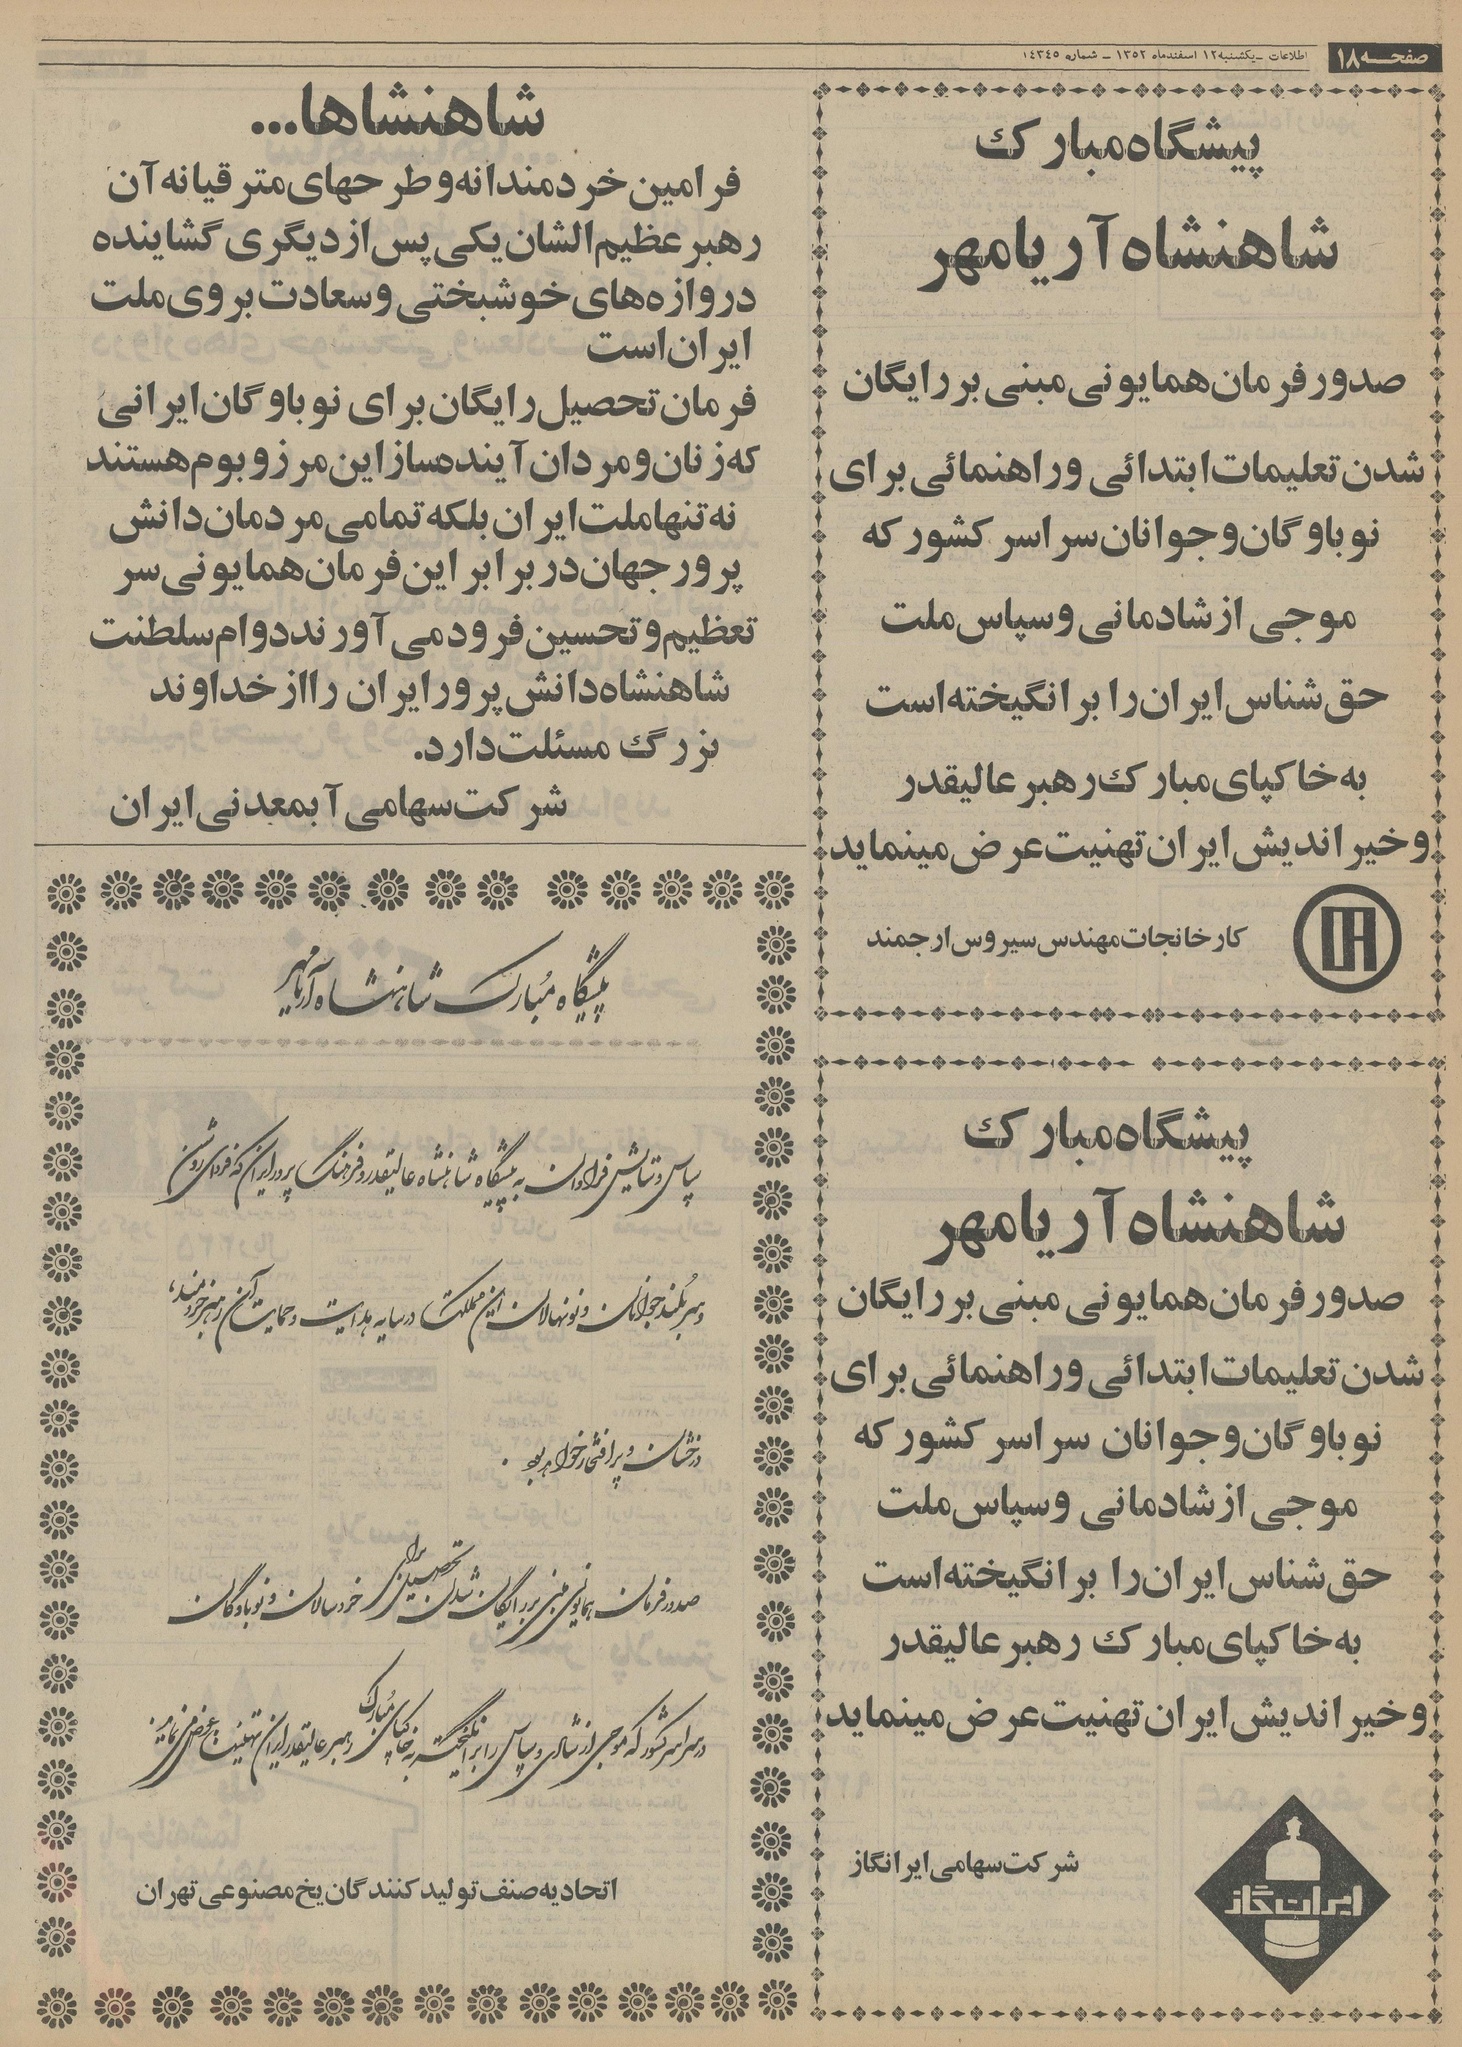 صفحه ۱۸
اطلاعات - یکشنبه ۱۲ اسفندماه ۱۳۵۲ - شماره ۱۴۳۴۵
پیشگاه مبارک
شاهنشاه آریامهر
صدور فرمان همایونی مبنی بر رایگان
شدن تعلیمات ابتدائی وراهنمائی برای
نوباوگان و جوانان سراسر کشور که
موجی از شادمانی وسپاس ملت
حق شناس ایران را برانگیخته است
به خاکپای مبارک رهبر عالیقدر
و خیراندیش ایران تهنیت عرض مینماید
کارخانجات مهندس سیروس ارجمند
پیشگاه مبارک
شاهنشاه آریامهر
صدور فرمان همایونی مبنی بر رایگان
شدن تعلیمات ابتدائی وراهنمائی برای
نوباوگان و جوانان سراسر کشور که
موجی از شادمانی وسپاس ملت
حق شناس ایران را برانگیخته است
به خاکپای مبارک رهبر عالیقدر
و خیراندیش ایران تهنیت عرض مینماید
شرکت سهامی ایرانگاز
ایران گاز
شاهنشاها...
فرامین خردمندانه وطرحهای مترقیانه آن
رهبر عظیم الشان یکی پس از دیگری گشاینده
دروازه های خوشبختی وسعادت بروی ملت
ایران است
فرمان تحصیل رایگان برای نوباوگان ایرانی
که زنان و مردان آینده ساز این مرز و بوم هستند
نه تنها ملت ایران بلکه تمامی مردمان دانش
پرور جهان در برابر این فرمان همایونی سر
تعظیم و تحسین فرود می آورند دوام سلطنت
شاهنشاه دانش پرور ایران را از خداوند
بزرگ مسئلت دارد.
شرکت سهامی آبمعدنی ایران
پیشگاه مبارک شاهنشاه آریامهر
سپاس و ستایش فراوان به پیشگاه شاهنشاه عالیقدر و فرهنگ پرور ایران که فردای روشن
و سربلند جوانان و نونهالان این مملکت در سایه هدایت و حمایت آن رهبر خردمند،
درخشان و پر افتخار خواهد بود.
صدور فرمان همایونی مبنی بر رایگان شدن تحصیل برای خردسالان و نوباوگان
در سراسر کشور که موجی از شادی و سپاس را برانگیخته به خاکپای مبارک رهبر عالیقدر ایران تهنیت عرض می نماید.
اتحادیه صنف تولید کنندگان یخ مصنوعی تهران